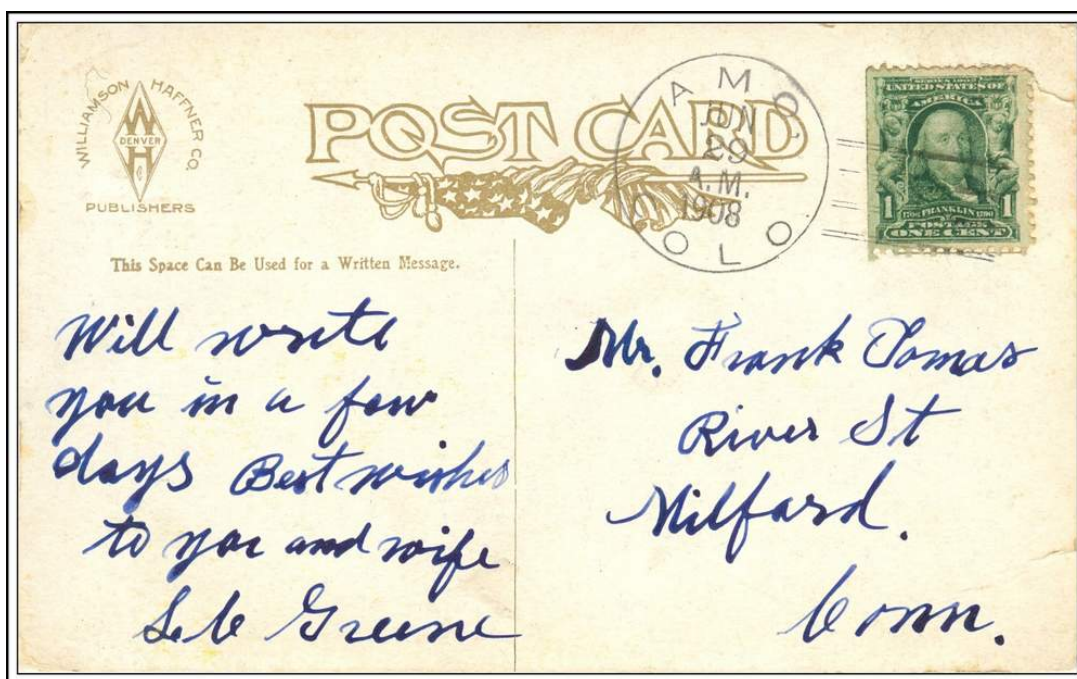 WILLIAMSON HAFFNER CO.
W H
DENVER
PUBLISHERS
POST CARD
AMO,
COLO
JUN
29
A.M.
1908
SERIES 1902
UNITED STATES OF
AMERICA
1 1706 FRANKLIN 1790 1
POSTAGE
ONE CENT
This Space Can Be Used for a Written Message.
Will write
you in a few
days Best wishes
to you and wife
Greene
Mr. Frank Tomas
River St
Milford.
Conn.